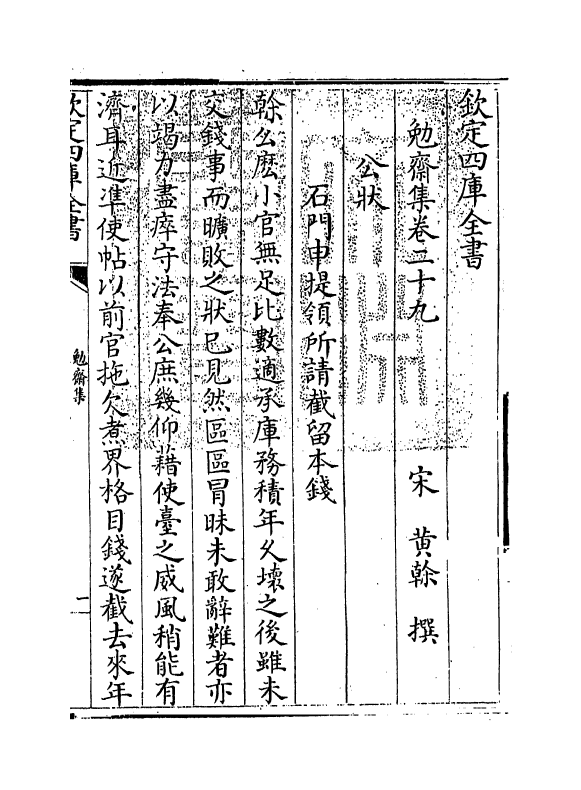 欽定四庫全書
勉齋集卷二十九
宋 黃榦 撰
公狀
石門申提領所請截留本錢
榦幺麽小官無足比數適承庫務積年久壞之後雖未
交錢事而曠敗之狀已見然區區冒昧未敢辭難者亦
以竭力盡瘁守法奉公庶幾仰藉使臺之威風稍能有
濟耳近準使帖以前官拖欠煮界格目錢遂截去來年
欽定四庫全書
勉齋集
一